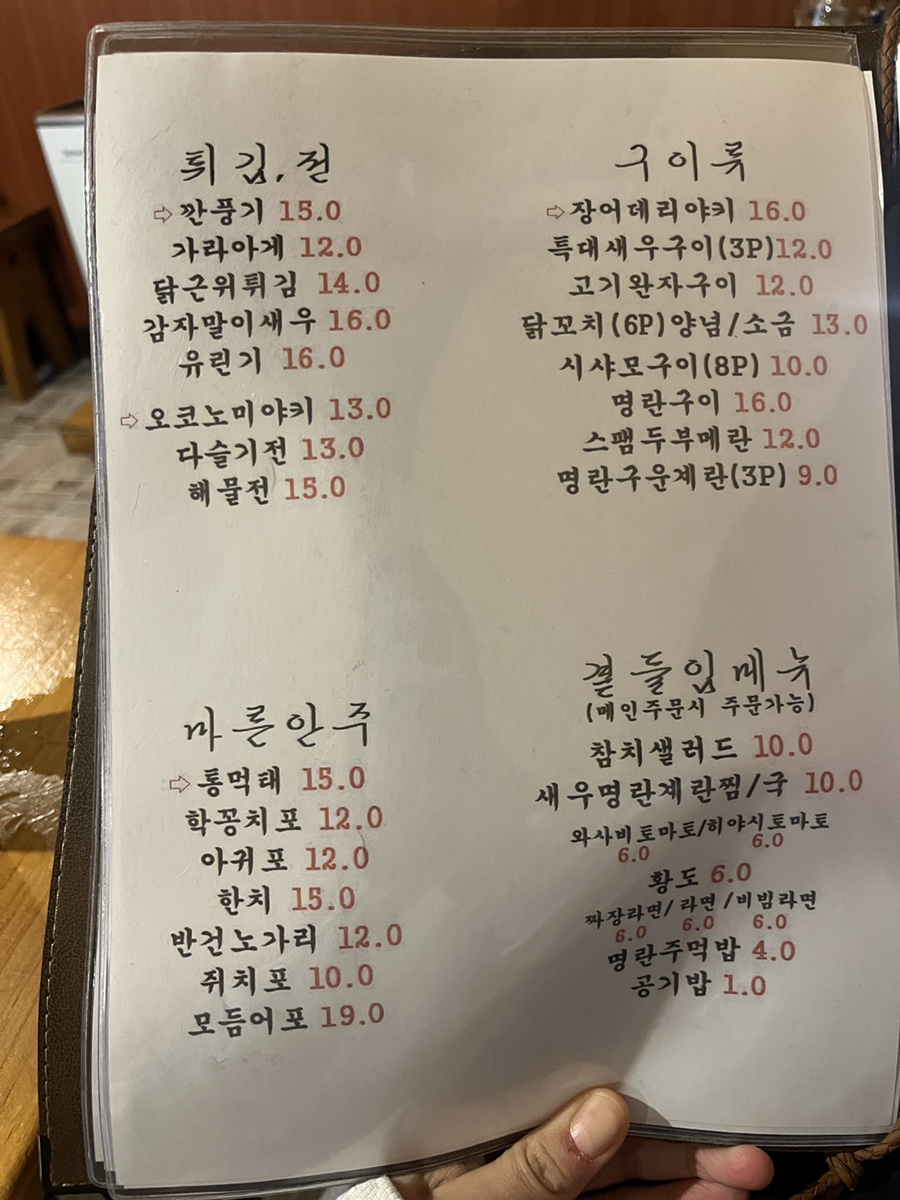 튀김,전
⇨깐풍기 15.0
가라아게 12.0
닭근위튀김 14.0
감자말이새우 16.0
유린기 16.0
⇨오코노미야키 13.0
다슬기전 13.0
해물전 15.0
구이류
⇨장어데리야키 16.0
특대새우구이(3P)12.0
고기완자구이 12.0
닭꼬치(6P)양념/소금 13.0
시샤모구이(8P) 10.0
명란구이 16.0
스팸두부메란 12.0
명란구운계란(3P) 9.0
마른안주
⇨통먹태 15.0
학꽁치포 12.0
아귀포 12.0
한치 15.0
반건노가리 12.0
쥐치포 10.0
모듬어포 19.0
곁들임메뉴
(메인주문시 주문가능)
참치샐러드 10.0
새우명란계란찜/국 10.0
와사비토마토/히야시토마토
6.0 6.0
황도 6.0
짜장라면/ 라면 /비빔라면
6.0 6.0 6.0
명란주먹밥 4.0
공기밥 1.0